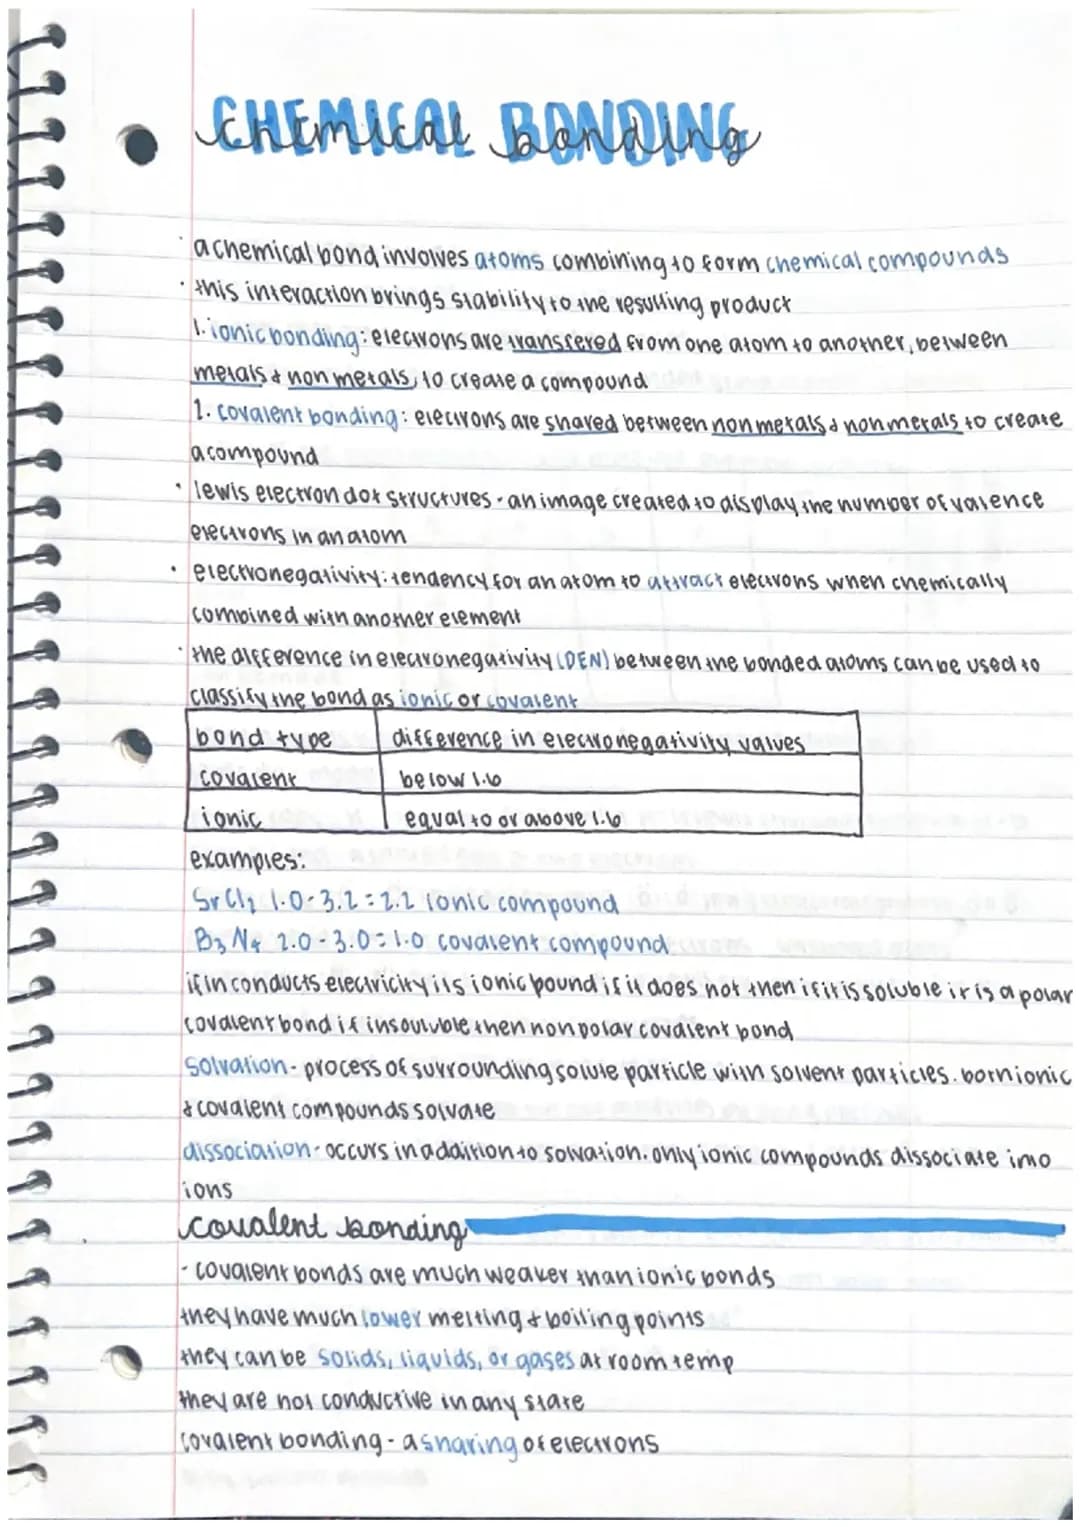 CHEMICAL BONDING
chemical bonding
· a chemical bond involves atoms combining to form chemical compounds
· this interaction brings stability to the resulting product
1. ionic bonding: electrons are transfered from one atom to another, between
metals & non metals, to create a compound
2. covalent bonding: electrons are shared between nonmetals & nonmetals to create
a compound
· lewis electron dot structures - an image created to display the number of valence
electrons in an atom
· electronegativity: tendency for an atom to attract electrons when chemically
combined with another element
· the difference in electronegativity (DEN) between the bonded atoms can be used to
classify the bond as ionic or covalent
bond type difference in electronegativity values
covalent below 1.6
ionic equal to or above 1.6
examples:
SrCl₂ 1.0-3.2=2.2 ionic compound
B₃N₄ 2.0-3.0=1.0 covalent compound
if in conducts electricity its ionic bound if it does not then if it is soluble it is a polar
covalent bond if insouluble then nonpolar covalent bond
solvation - process of surrounding solute particle with solvent particles. both ionic
& covalent compounds solvate
dissociation - occurs in addition to solvation. only ionic compounds dissociate into
ions
covalent bonding
- covalent bonds are much weaker than ionic bonds
they have much lower melting & boiling points
they can be solids, liquids, or gases at room temp
they are not conductive in any state
covalent bonding - a sharing of electrons